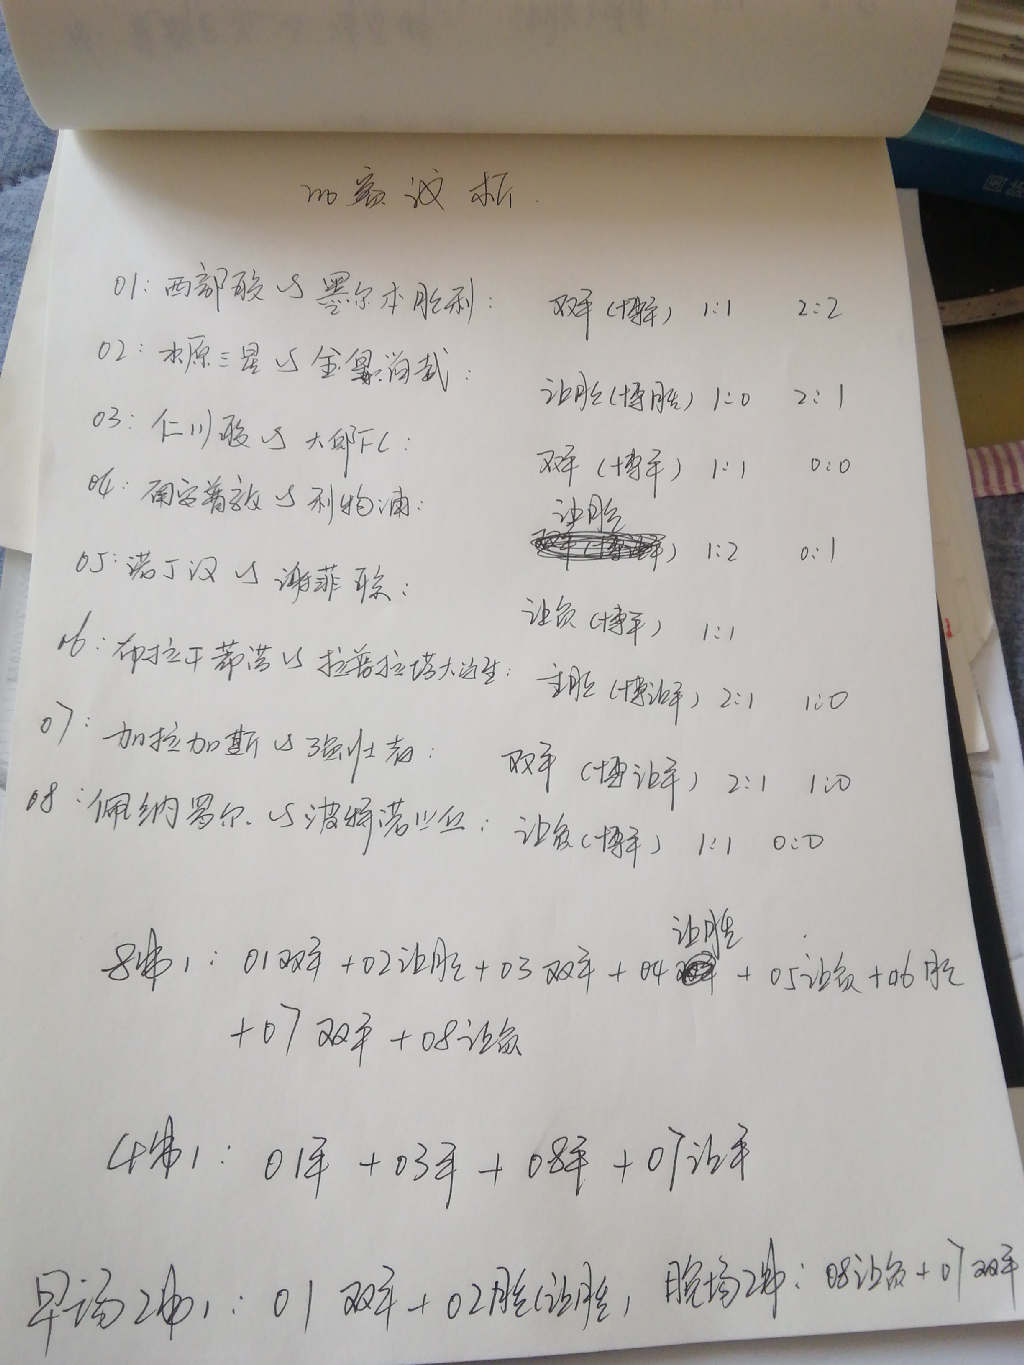 01: 西部联 VS 墨尔本胜利: 双平 (博平) 1:1 2:2
02: 水原三星 VS 金泉尚武: 让胜 (博胜) 1:0 2:1
03: 仁川联 VS 大邱FC: 双平 (博平) 1:1 0:0
让胜
04: 南安普敦 VS 利物浦: 1:2 0:1
05: 诺丁汉 VS 谢菲联: 让负 (博平) 1:1
06: 布拉干蒂诺 VS 拉普拉塔大学生: 主胜 (博让平) 2:1 1:0
07: 加拉加斯 VS 强壮者: 双平 (博让平) 2:1 1:0
08: 佩纳罗尔 VS 波特诺山丘: 让负 (博平) 1:1 0:0
让胜
8串1: 01双平+02让胜+03双平+04 +05让负+06胜
+07双平+08让负
4串1: 01平+03平+08平+07让平
早场2串1: 01双平+02胜(让胜) 晚场2串: 08让负+07双平